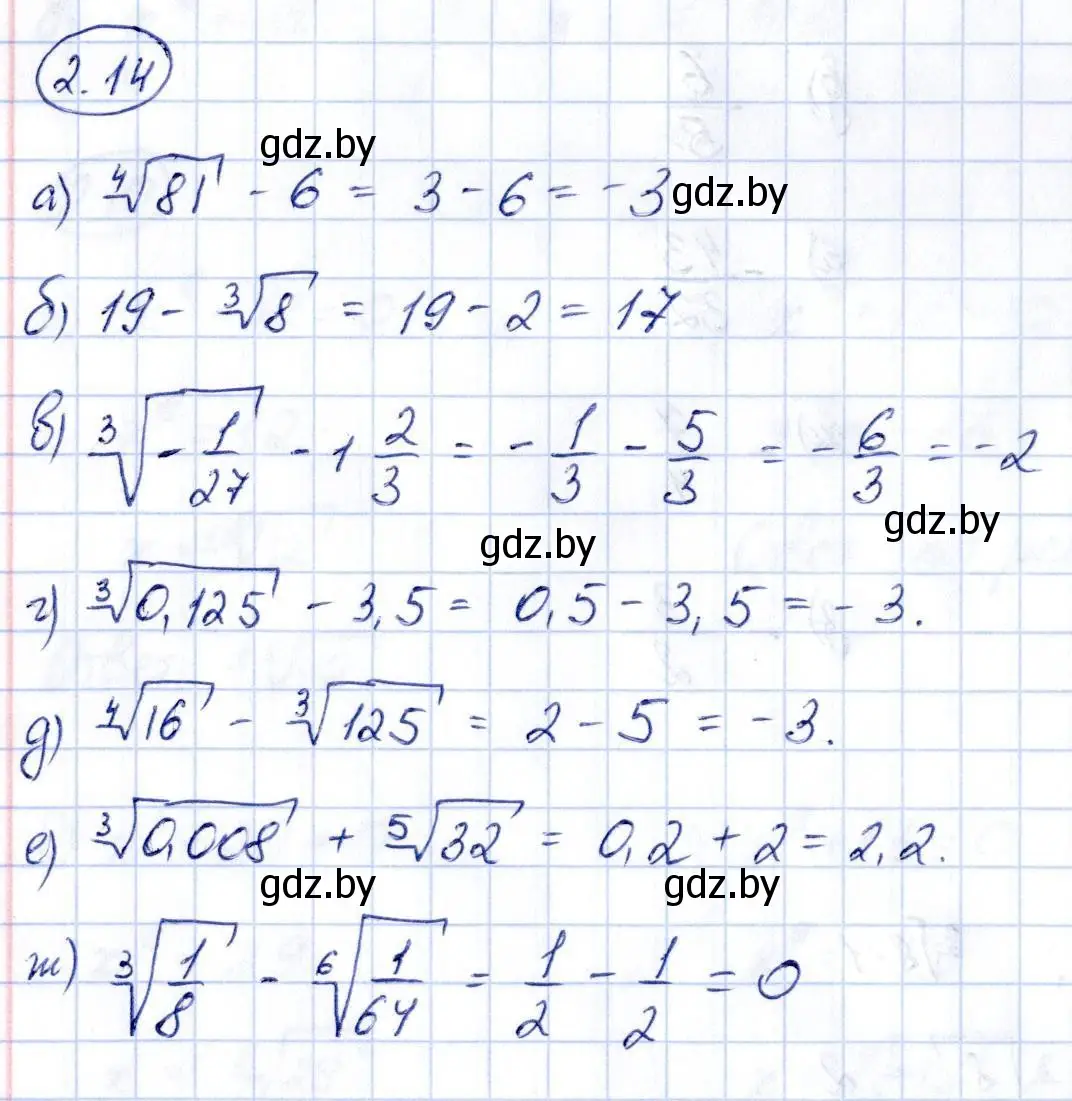 2.14
gdz.by
а) ⁴√81 - 6 = 3 - 6 = -3
gdz.by
б) 19 - ³√8 = 19 - 2 = 17
в) ³√(-1/27) - 1 2/3 = - 1/3 - 5/3 = - 6/3 = -2
gdz.by
gdz.by
г) ³√0,125 - 3,5 = 0,5 - 3,5 = - 3.
д) ⁴√16 - ³√125 = 2 - 5 = -3.
е) ³√0,008 + ⁵√32 = 0,2 + 2 = 2,2.
gdz.by
gdz.by
ж) ³√(1/8) - ⁶√(1/64) = 1/2 - 1/2 = 0